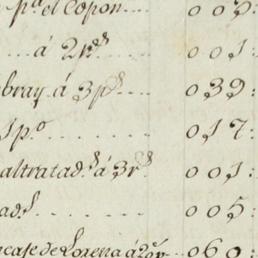 pª el Copon .... 002:
á 2 rˢ ..... 001:
bray á 3 pˢ .... 039:
1 pº ....... 017:
altratadˢ á 3 rˢ 001:
adˢ ....... 005:
ncaje de Lorena á 2 qʳ 060: